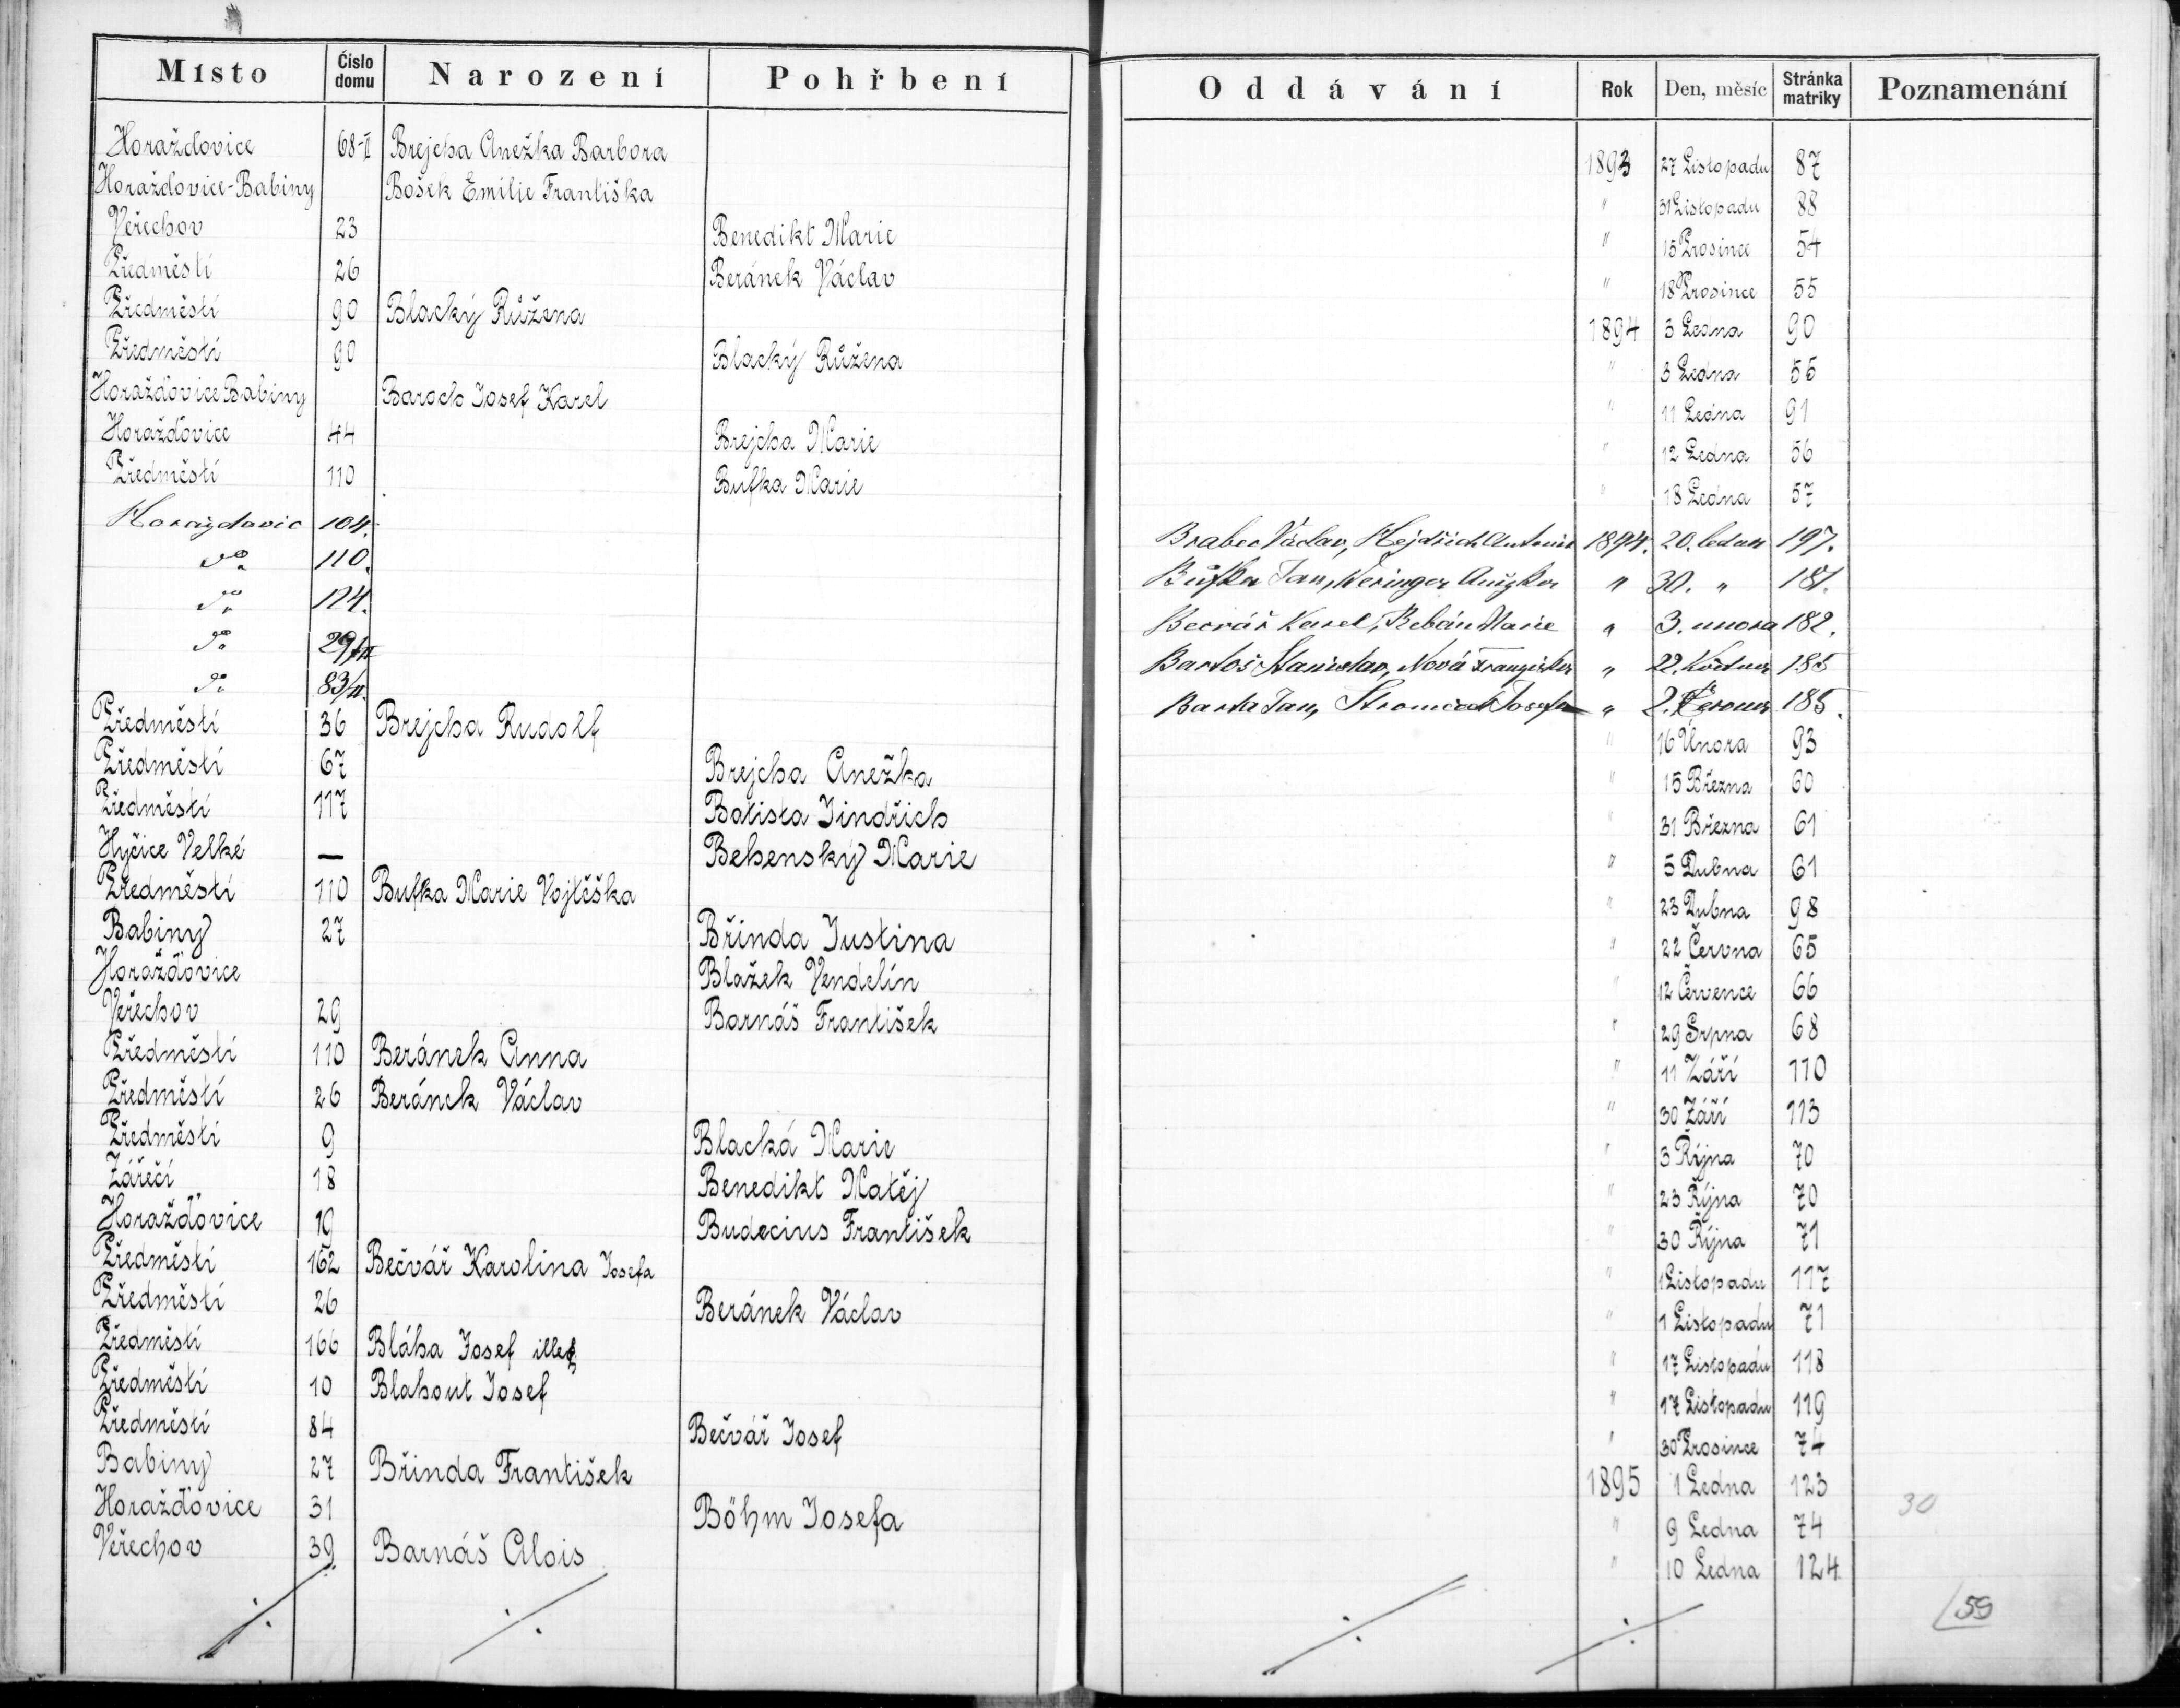 Místo Číslo domu Narození Pohřbení Oddávání Rok Den, měsíc Stránka matriky Poznamenání
Horažďovice 68-II Brejcha Anežka Barbora 1893 27 Listopadu 87
Horažďovice-Babiny Bošek Emilie Františka " 31 Listopadu 88
Veřechov 23 Benedikt Marie " 15 Prosince 54
Předměstí 26 Beránek Václav " 18 Prosince 55
Předměstí 90 Blacký Růžena 1894 3 Ledna 90
Předměstí 90 Blacký Růžena " 3 Ledna 56
Horažďovice Babiny Baroch Josef Karel " 11 Ledna 91
Horažďovice 44 Brejcha Marie " 12 Ledna 56
Předměstí 110 Bufka Marie " 18 Ledna 57
Horažďovic 104. Brabec Václav, Hejdrich Antonie 1894. 20. ledna 197.
do. 110. Bufka Jan, Anežka " 30. " 181.
do. 124. Becvář Karel, Marie " 3. unora 182.
do. 29/II Bartoš Stanislav, Nová " 22. 185
do. 83/II. Barta Jan, " 2. 185.
Předměstí 36 Brejcha Rudolf " 16 Února 93
Předměstí 67 Brejcha Anežka " 15 Března 60
Předměstí 117 Batista Jindřich " 31 Března 61
Hyčice Velké — Behenský Marie " 5 Dubna 61
Předměstí 110 Bufka Marie Vojtěška " 23 Dubna 98
Babiny 27 Břinda Justina " 22 Června 65
Horažďovice Blažek Vendelín " 12 Července 66
Veřechov 29 Barnáš František " 29 Srpna 68
Předměstí 110 Beránek Anna " 11 Září 110
Předměstí 26 Beránek Václav " 30 Září 113
Předměstí 9 Blacká Marie " 3 Října 70
Zářečí 18 Benedikt Matěj " 23 Října 70
Horažďovice 19 Budecius František " 30 Října 71
Předměstí 162 Bečvář Karolina Josefa " 1 Listopadu 117
Předměstí 26 Beránek Václav " 1 Listopadu 71
Předměstí 166 Bláha Josef illeg. " 17 Listopadu 118
Předměstí 10 Blahout Josef " 17 Listopadu 119
Předměstí 84 Bečvář Josef " 30 Prosince 74
Babiny 27 Břinda František 1895 1 Ledna 123
Horažďovice 31 Böhm Josefa " 9 Ledna 74 30
Veřechov 39 Barnáš Alois " 10 Ledna 124
59